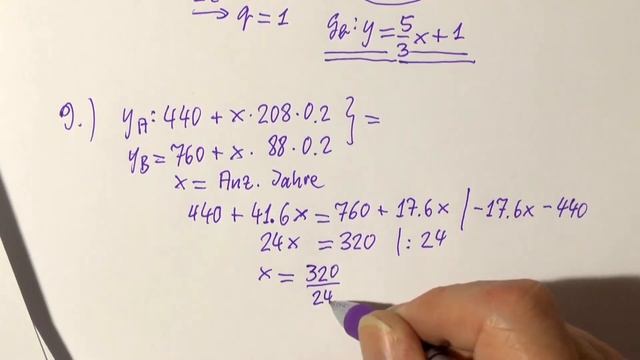 → q = 1
g₂: y = 5/3 x + 1
9.) y_A: 440 + x · 208 · 0.2 } =
y_B = 760 + x · 88 · 0.2
x = Anz. Jahre
440 + 41.6x = 760 + 17.6x | -17.6x - 440
24x = 320 | : 24
x = 320/24